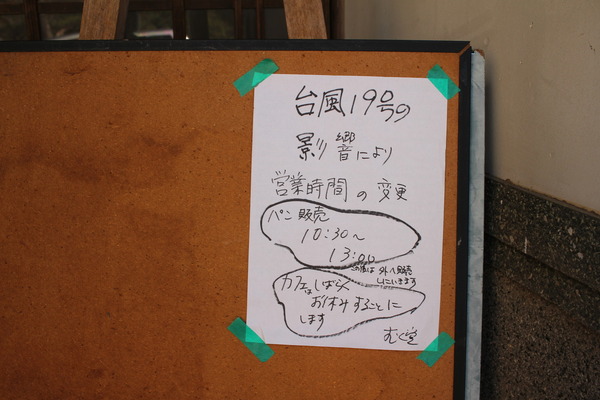 台風19号の
影響により
営業時間の変更
パン販売
10:30〜
13:00
この後は外へ販売
しにいきます
カフェはしばらく
お休みすることに
します
むぐ堂